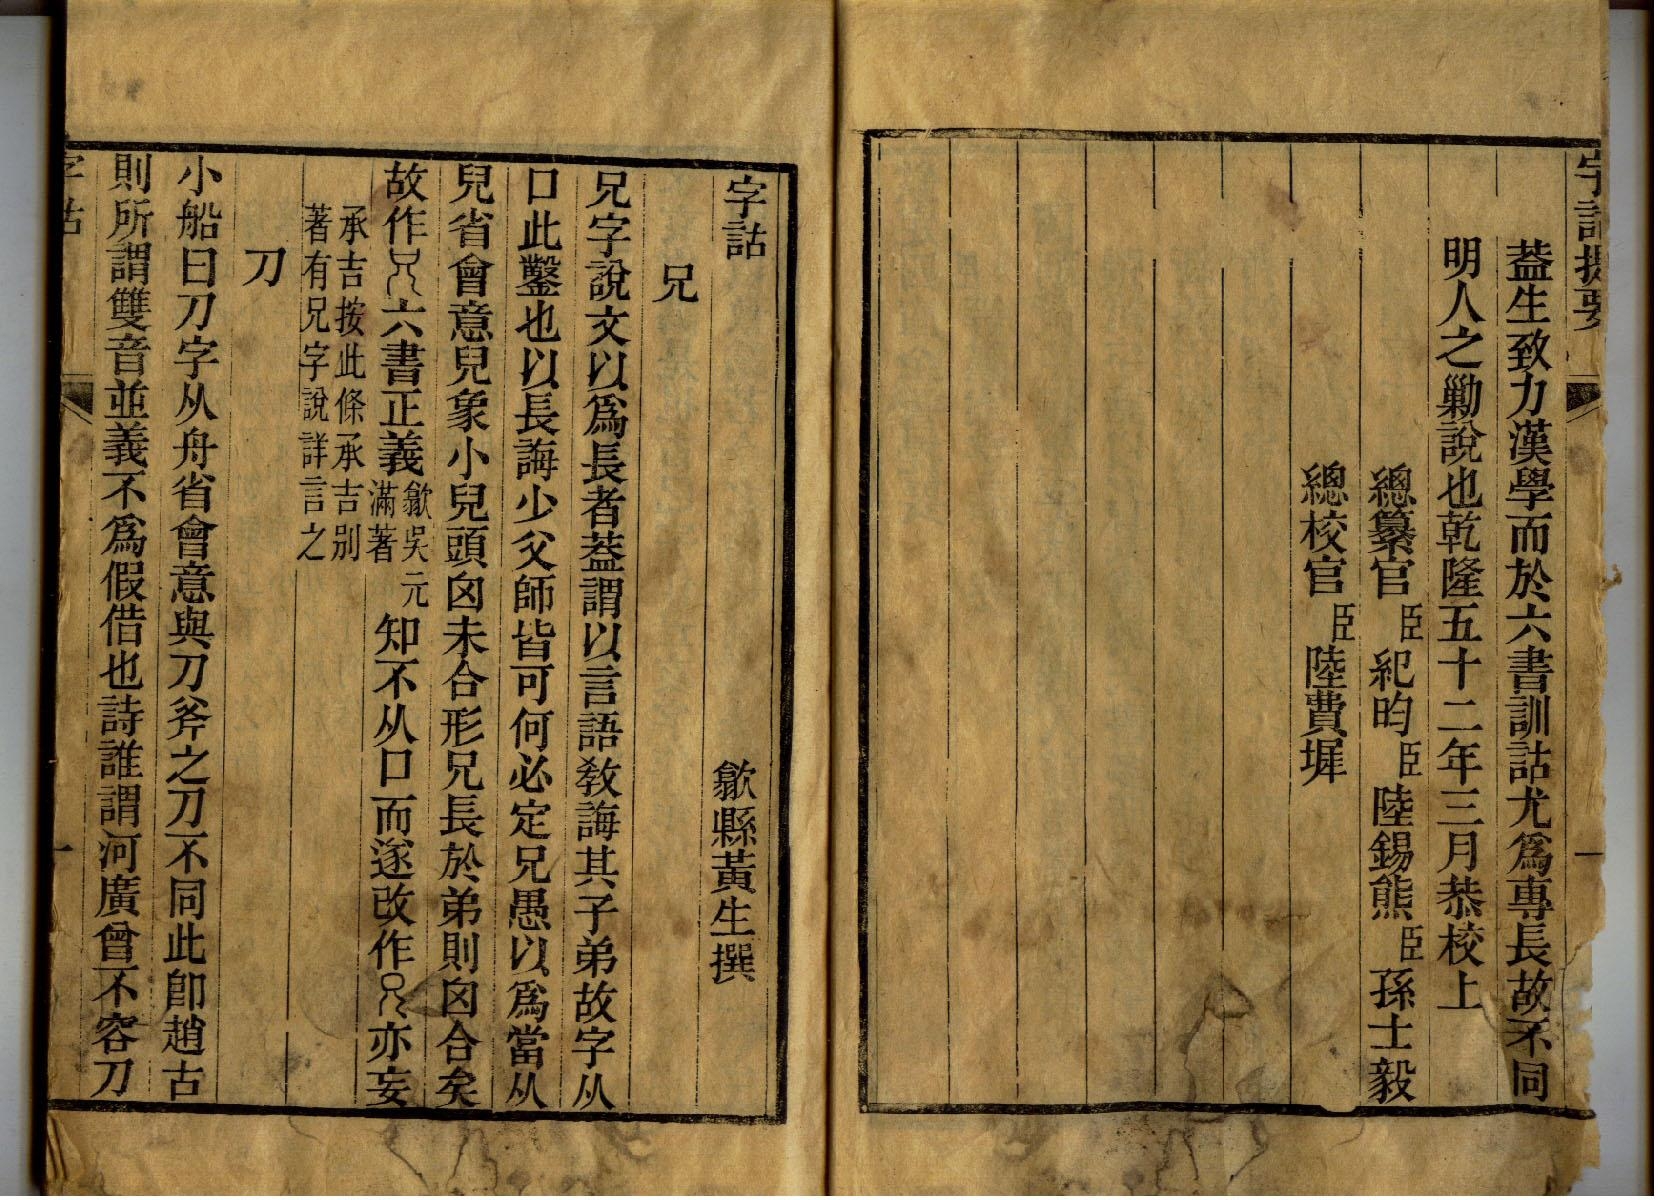 字詁提要
蓋生致力漢學而於六書訓詁尤爲專長故不同
明人之勦說也乾隆五十二年三月恭校上
總纂官臣紀昀臣陸錫熊臣孫士毅
總校官臣陸費墀
一
字詁
歙縣黃生撰
兄
兄字說文以爲長者葢謂以言語教誨其子弟故字从
口此鑿也以長誨少父師皆可何必定兄愚以爲當从
兒省會意兒象小兒頭囟未合形兄長於弟則囟合矣
故作六書正義歙吳元
滿著知不从口而遂改作亦妄
承吉按此條承吉別
著有兄字說詳言之
刀
小船曰刀字从舟省會意與刀斧之刀不同此卽趙古
則所謂雙音並義不爲假借也詩誰謂河廣曾不容刀
字詁
一